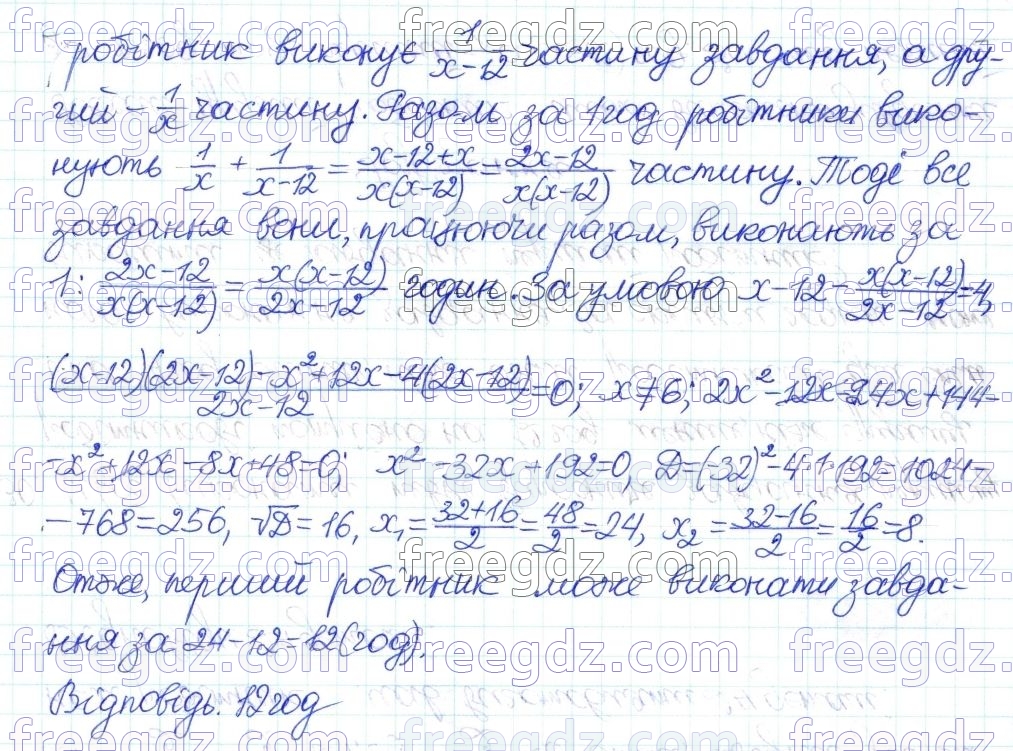 робітник виконує 1/(x-12) частину завдання, а дру-
гий - 1/x частину. Разом за 1 год робітники вико-
нують 1/x + 1/(x-12) = (x-12+x)/(x(x-12)) = (2x-12)/(x(x-12)) частину. Тоді все
завдання вони, працюючи разом, виконають за
1 : (2x-12)/(x(x-12)) = x(x-12)/(2x-12) годин. За умовою x-12 - x(x-12)/(2x-12) = 4,
((x-12)(2x-12) - x² + 12x - 4(2x-12))/(2x-12) = 0; x ≠ 6; 2x² - 12x - 24x + 144 -
- x² + 12x - 8x + 48 = 0; x² - 32x + 192 = 0, D = (-32)² - 4·1·192 = 1024 -
- 768 = 256, √D = 16, x₁ = (32+16)/2 = 48/2 = 24, x₂ = (32-16)/2 = 16/2 = 8.
Отже, перший робітник може виконати завда-
ння за 24 - 12 = 12 (год).
Відповідь. 12 год
freegdz.com